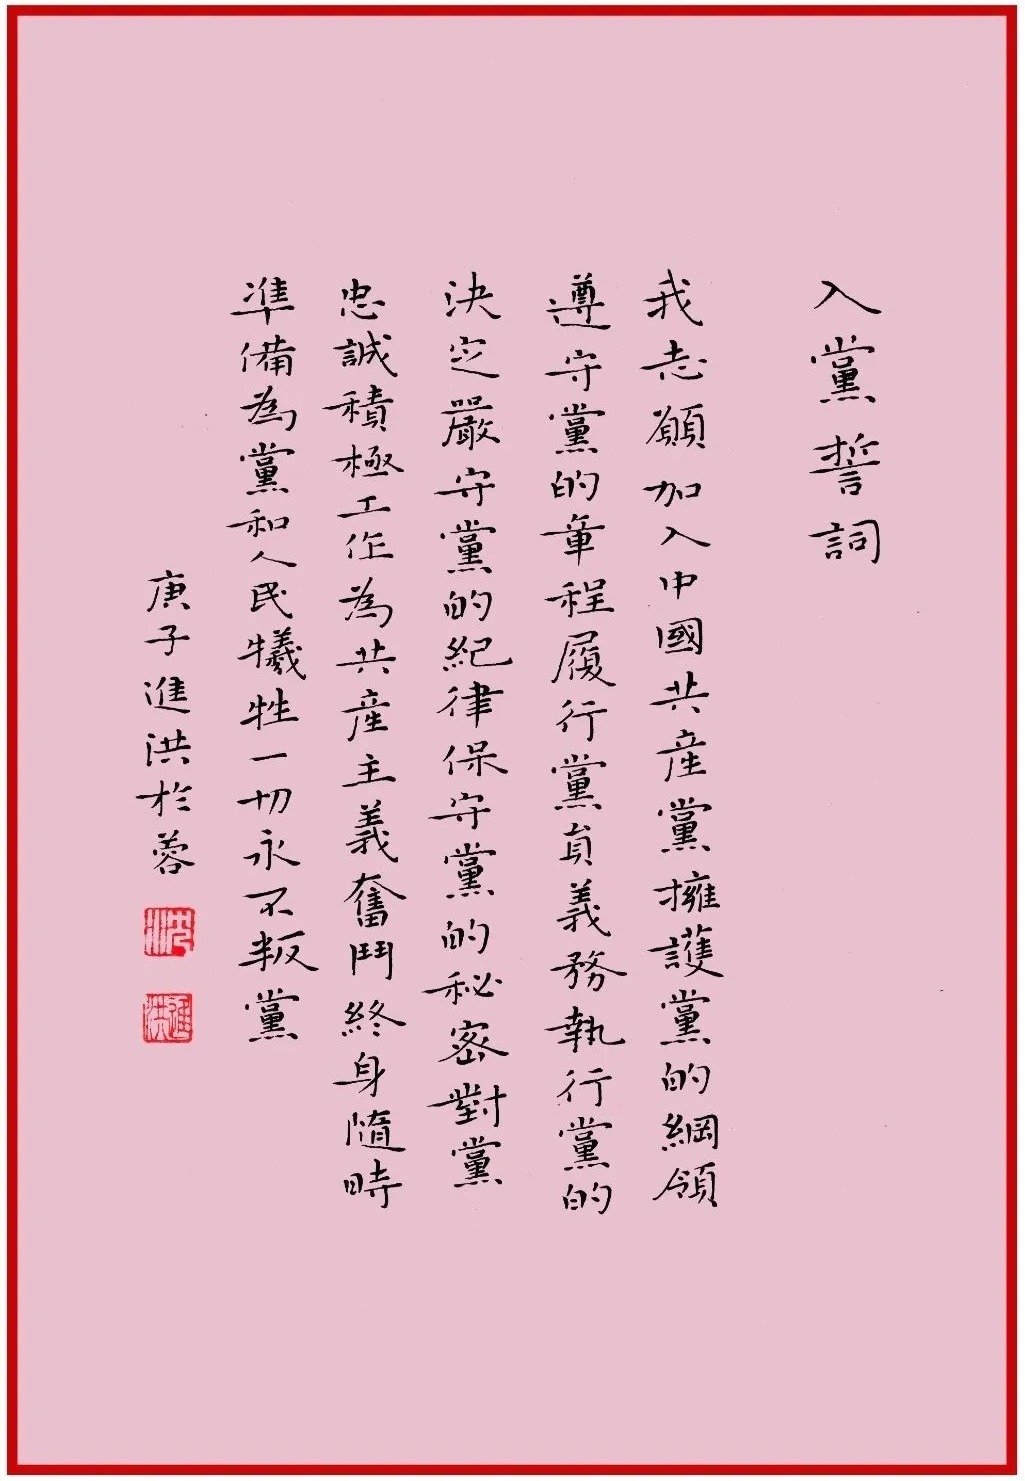 入黨誓詞
我志願加入中國共産黨擁護黨的綱領
遵守黨的章程履行黨員義務執行黨的
決定嚴守黨的紀律保守黨的秘密對黨
忠誠積極工作為共産主義奮鬥終身隨時
準備為黨和人民犧牲一切永不叛黨
庚子進洪於蓉
沈
進洪